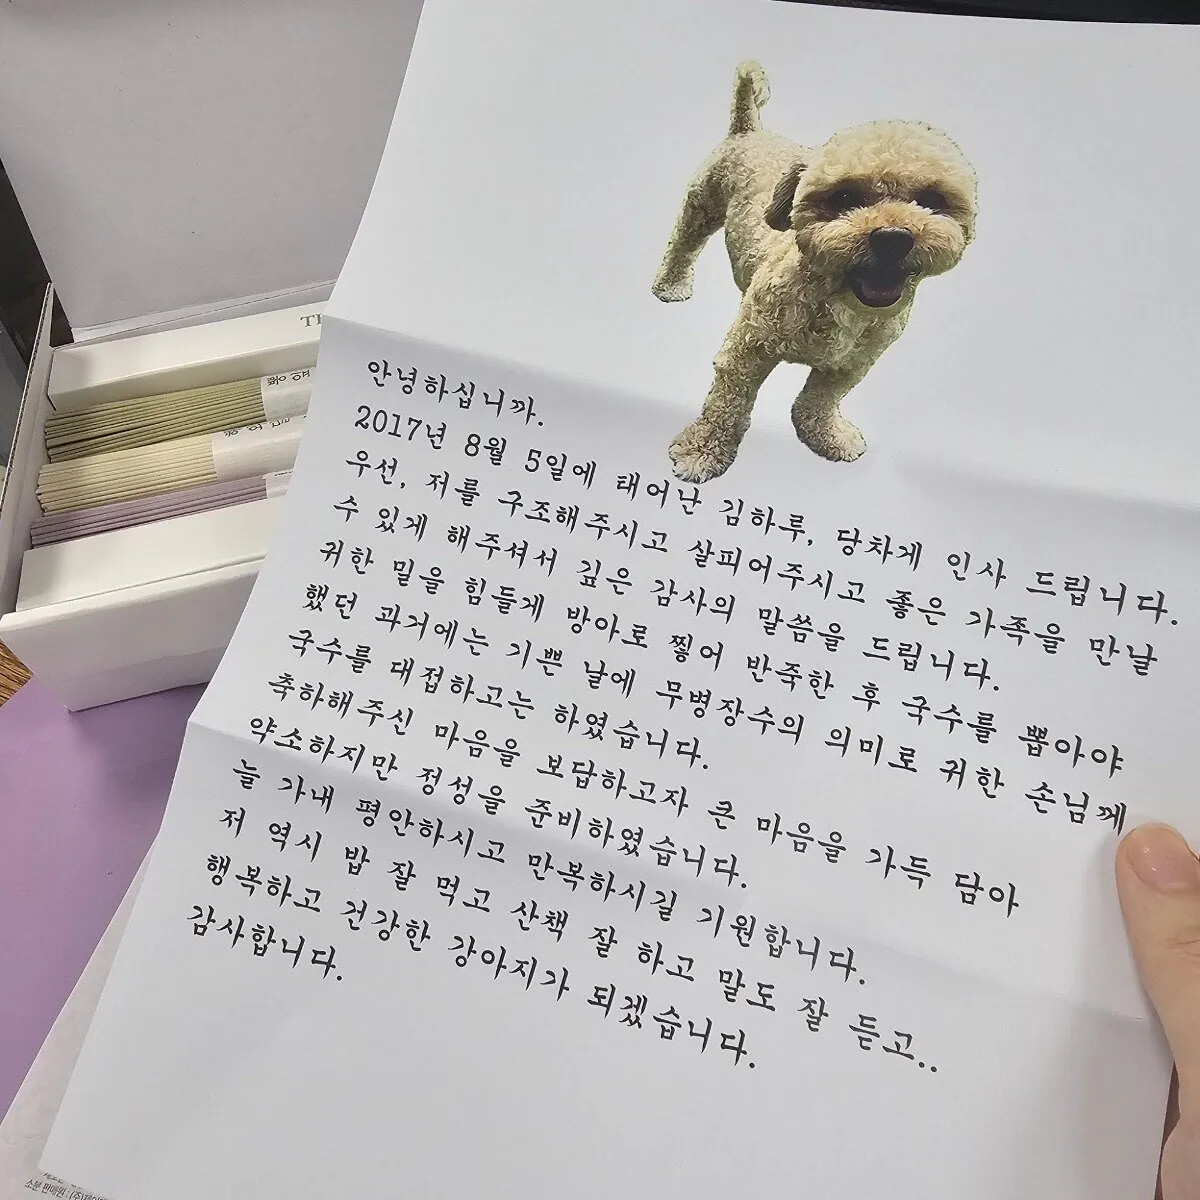 안녕하십니까.
2017년 8월 5일에 태어난 김하루, 당차게 인사 드립니다.
우선, 저를 구조해주시고 살피어주시고 좋은 가족을 만날
수 있게 해주셔서 깊은 감사의 말씀을 드립니다.
귀한 밀을 힘들게 방아로 찧어 반죽한 후 국수를 뽑아야
했던 과거에는 기쁜 날에 무병장수의 의미로 귀한 손님께
국수를 대접하고는 하였습니다.
축하해주신 마음을 보답하고자 큰 마음을 가득 담아
약소하지만 정성을 준비하였습니다.
늘 가내 평안하시고 만복하시길 기원합니다.
저 역시 밥 잘 먹고 산책 잘 하고 말도 잘 듣고..
행복하고 건강한 강아지가 되겠습니다.
감사합니다.
소분 판매원 : (주)